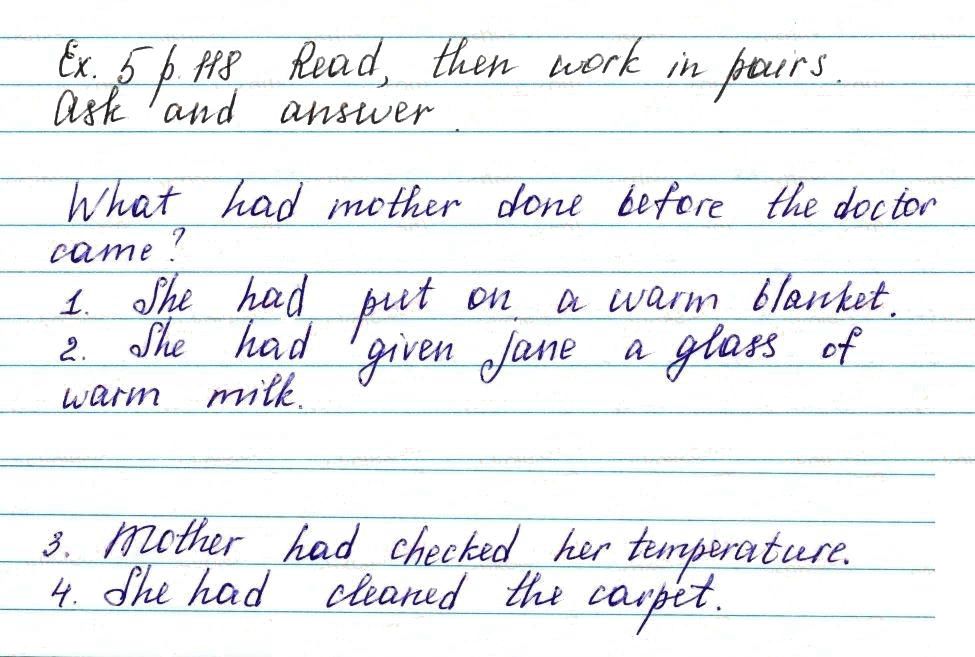 Ex. 5 p. 118 Read, then work in pairs.
Ask and answer.
What had mother done before the doctor
came?
1. She had put on a warm blanket.
2. She had given Jane a glass of
warm milk.
3. Mother had checked her temperature.
4. She had cleaned the carpet.